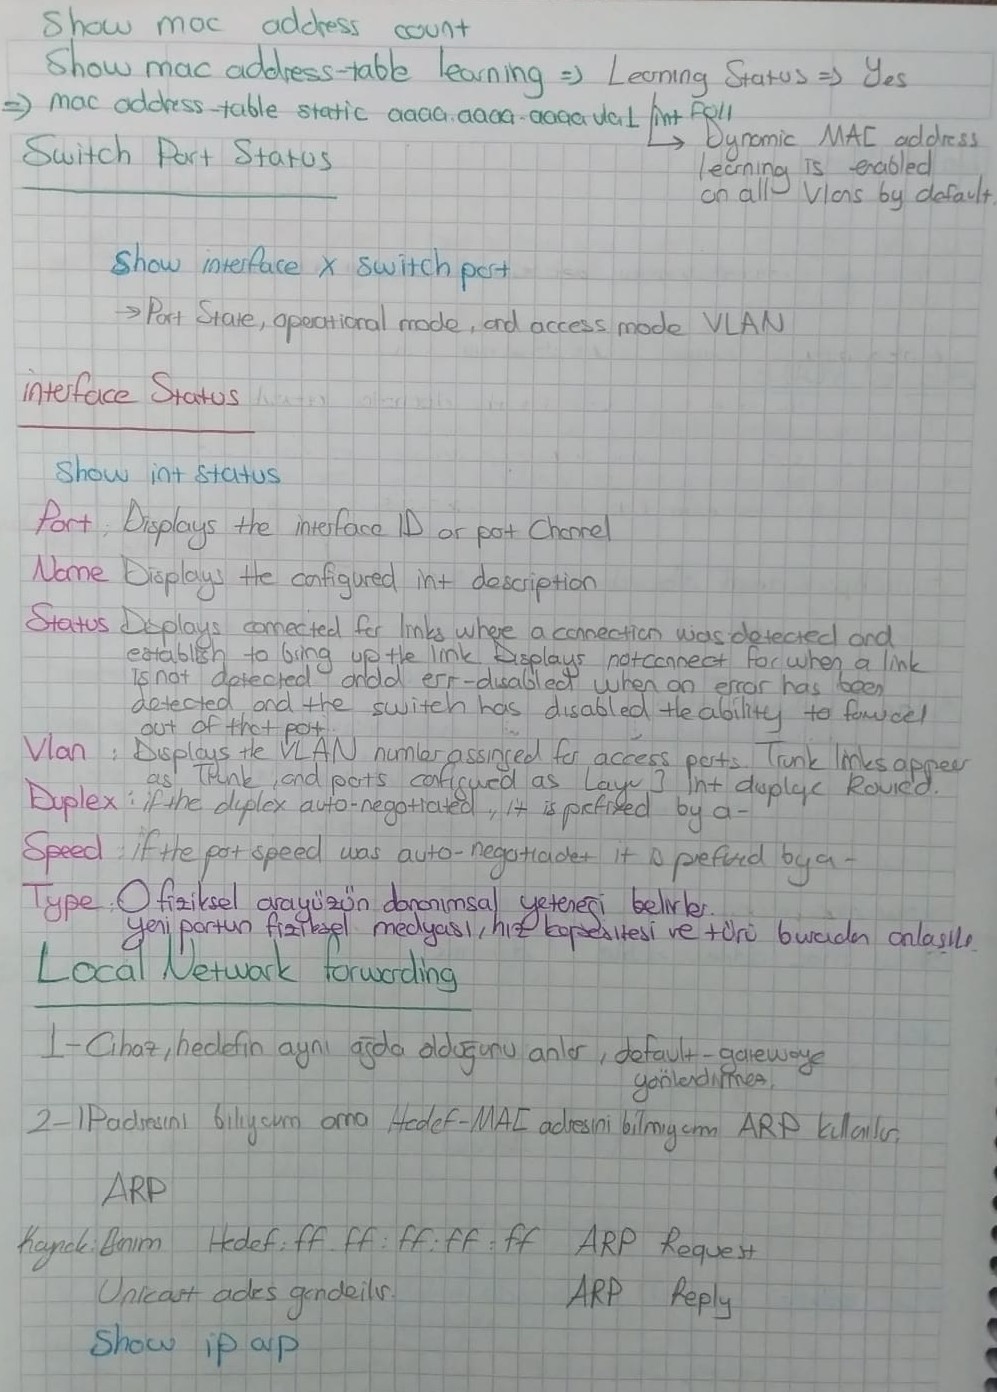 Show mac address count
Show mac address-table learning => Learning Status => Yes
=> mac address-table static aaaa.aaaa.aaaa vlan 1 int
↳ Dynamic MAC address
learning is enabled
on all Vlans by default.
Switch Port Status
Show interface x switch port
→ Port State, operational mode, and access mode VLAN
interface Status
Show int status
Port : Displays the interface ID or port Channel
Name Displays the configured int description
Status Displays connected for links where a connection was detected and
establish to bring up the link Displays notconnect for when a link
is not detected andd err-disabled when an error has been
detected, and the switch has disabled the ability to forward
out of that port.
Vlan : Displays the VLAN number assigned for access ports. Trunk links appear
as Trunk, and ports configured as Layer 3 int Routed.
Duplex : if the duplex auto-negotiated, it is prefixed by a-
Speed : if the port speed was auto-negotiated it is by a-
Type : O fiziksel arayüzün donanımsal yeteneği belirler.
yeni portun fiziksel medyası, hız kapasitesi ve türü buradan anlaşılır.
Local Network forwarding
1- Cihaz, hedefin aynı ağda olduğunu anlar, default-gatewaye
yönlendirmez.
2- IP adresini biliyorum ama Hedef-MAC adresini bilmiyorum ARP kullanılır.
ARP
Kaynak: Benim Hedef: ff.ff:ff:ff:ff ARP Request
Unicast adres gönderilir. ARP Reply
Show ip arp